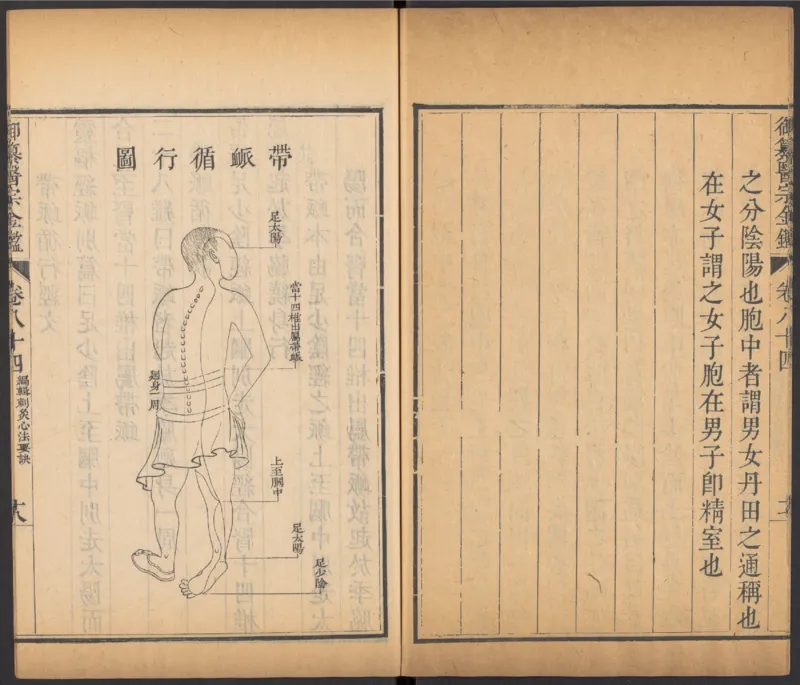 御纂醫宗金鑑
卷八十四
之分陰陽也胞中者謂男女丹田之通稱也
在女子謂之女子胞在男子卽精室也
帶脈循行圖
足太陽
當十四椎出屬帶脈
廻身一周
上至膕中
足太陽
足少陰
御纂醫宗金鑑
卷八十四
編輯刺灸心法要訣